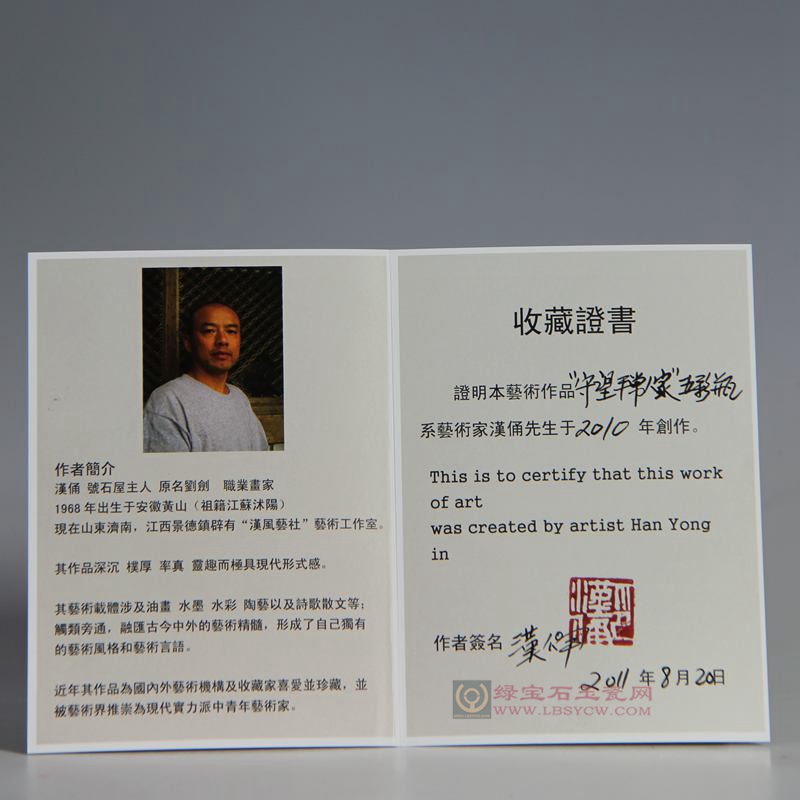 作者簡介
漢俑 號石屋主人 原名劉劍 職業畫家
1968年出生于安徽黃山（祖籍江蘇沭陽）
現在山東濟南，江西景德鎮辟有“漢風藝社”藝術工作室。
其作品深沉 樸厚 率真 靈趣而極具現代形式感。
其藝術載體涉及油畫 水墨 水彩 陶藝以及詩歌散文等；
觸類旁通，融匯古今中外的藝術精髓，形成了自己獨有
的藝術風格和藝術言語。
近年其作品為國內外藝術機構及收藏家喜愛並珍藏，並
被藝術界推崇為現代實力派中青年藝術家。
收藏證書
證明本藝術作品“守望平常人家”五彩瓶
系藝術家漢俑先生于2010年創作。
This is to certify that this work
of art
was created by artist Han Yong
in
作者簽名 漢俑
2011年8月20日
绿宝石玉瓷网
WWW.LBSYCW.COM